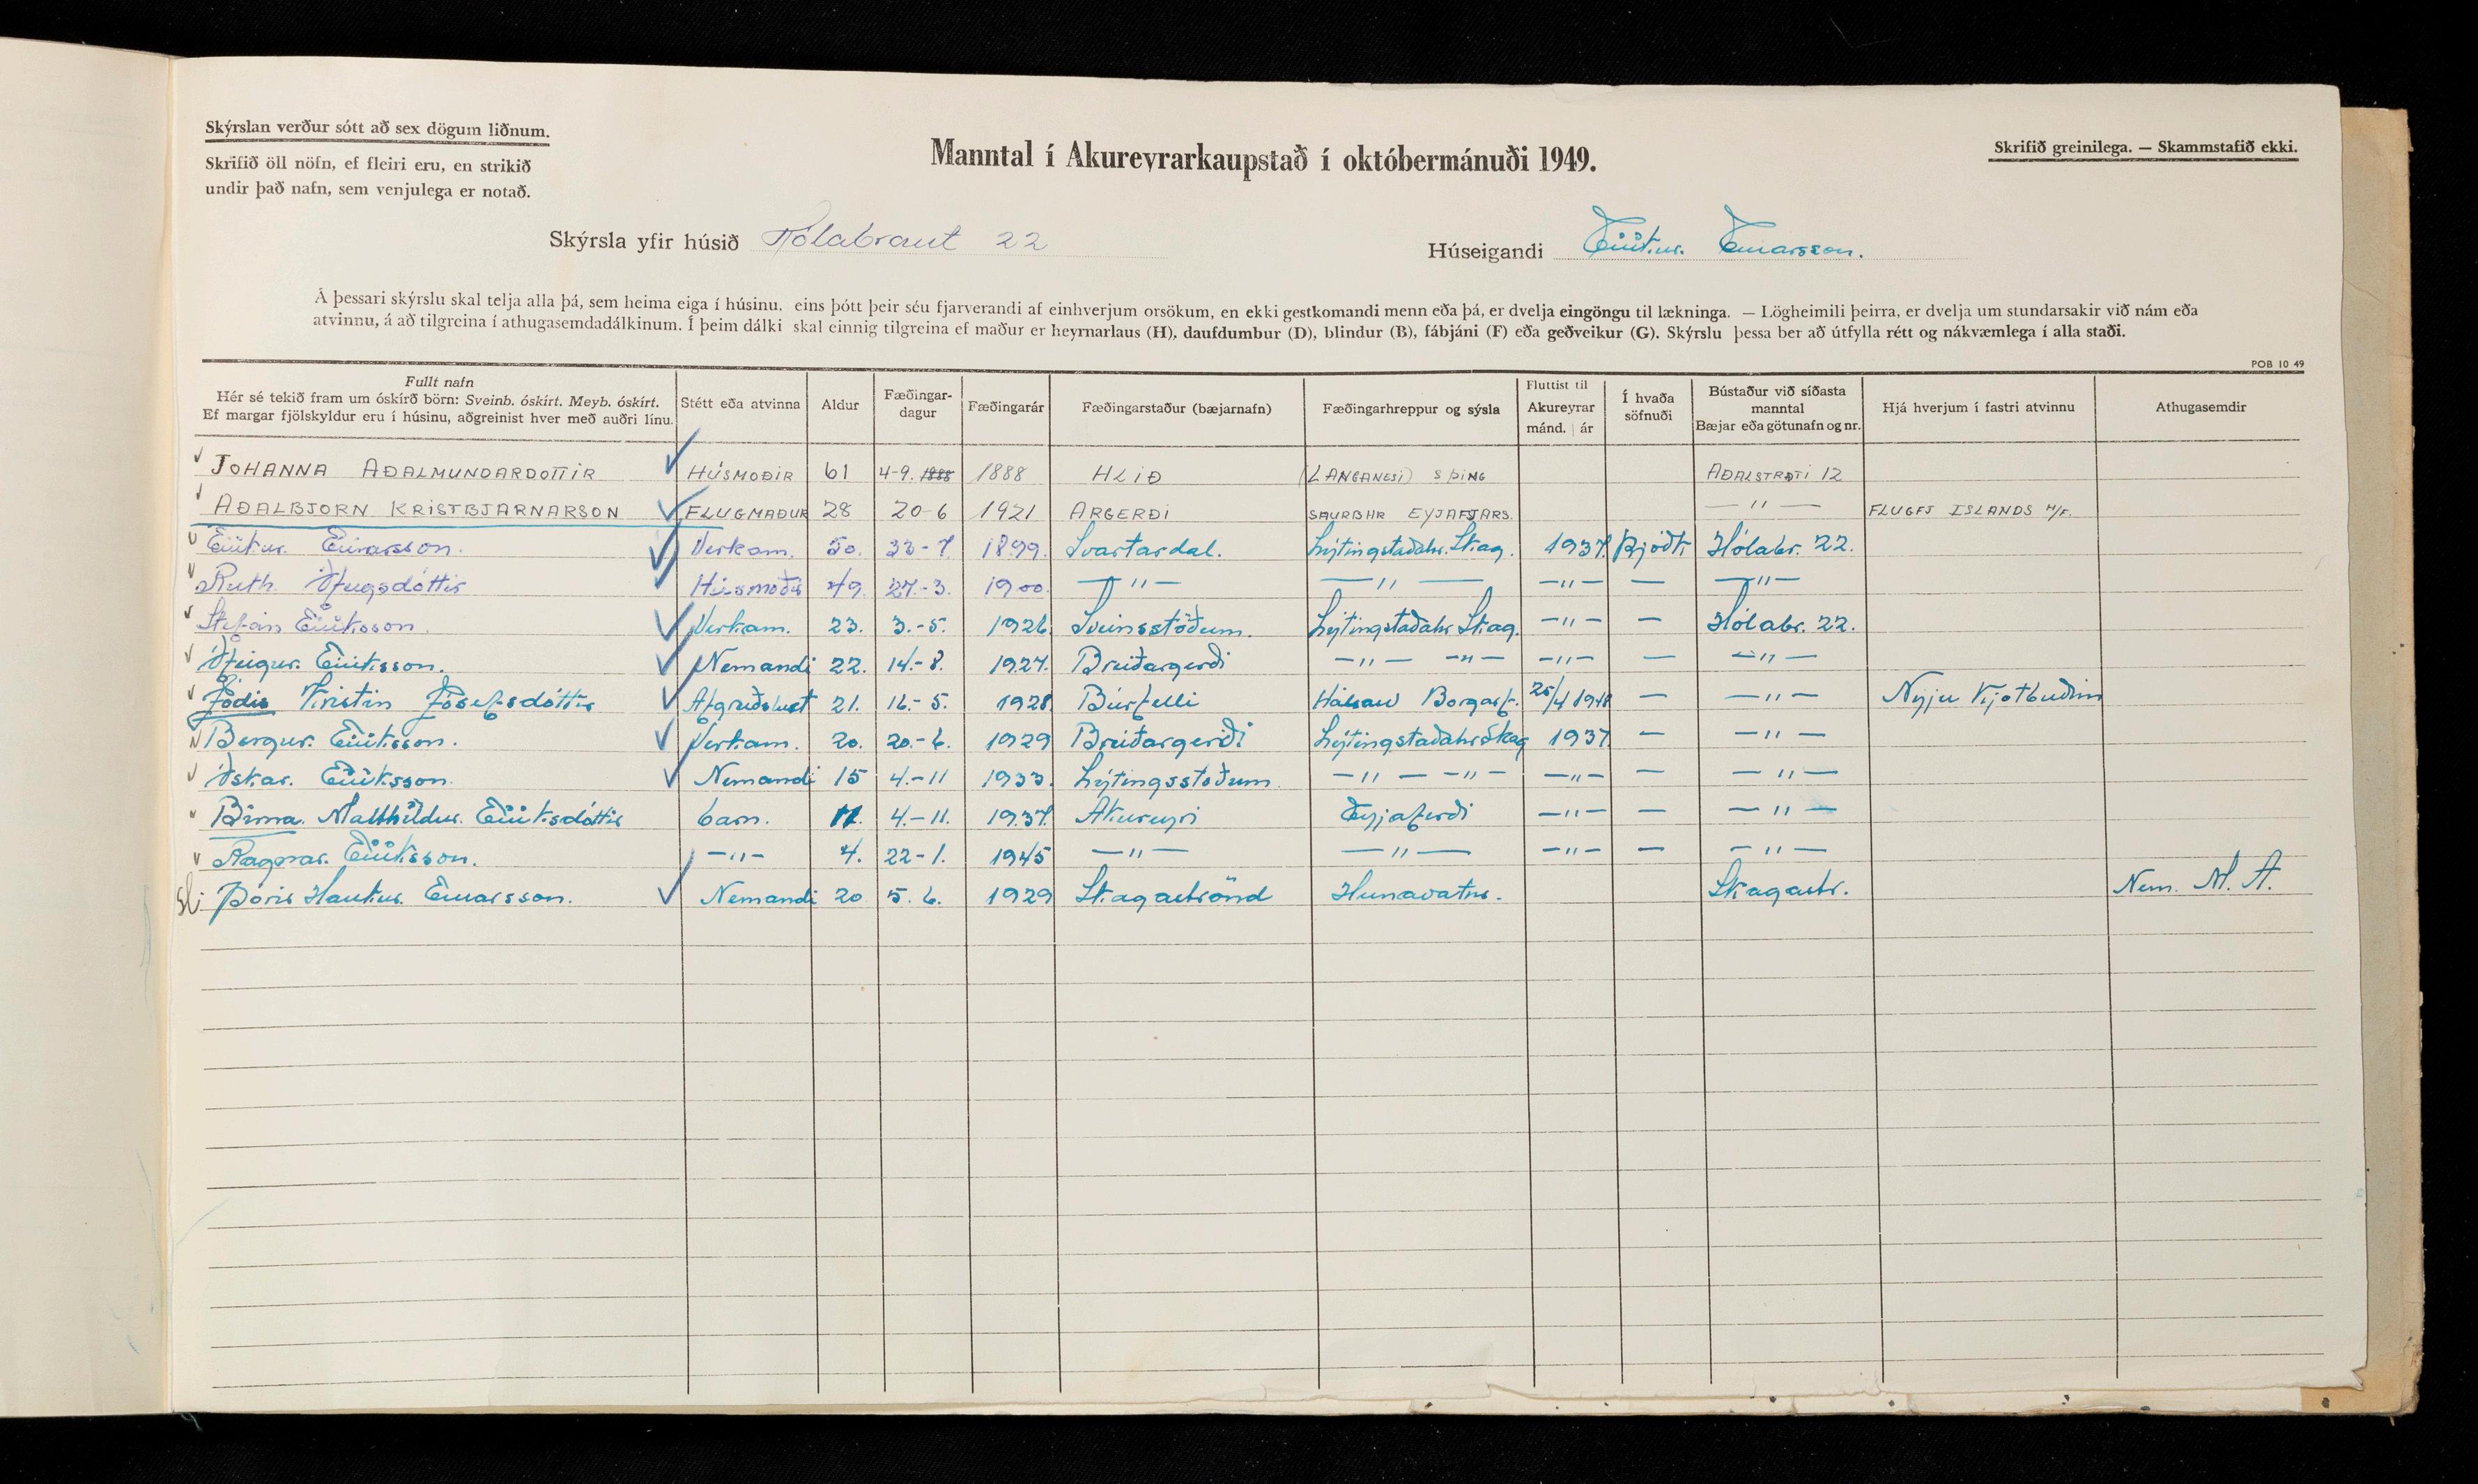 Skýrslan verður sótt að sex dögum liðnum.
Skrifið öll nöfn, ef fleiri eru, en strikið
undir það nafn, sem venjulega er notað.
Manntal í Akureyrarkaupstað í októbermánuði 1949.
Skrifið greinilega. — Skammstafið ekki.
Skýrsla yfir húsið Hólabraut 22
Húseigandi Eiríkur Einarsson.
Á þessari skýrslu skal telja alla þá, sem heima eiga í húsinu, eins þótt þeir séu fjarverandi af einhverjum orsökum, en ekki gestkomandi menn eða þá, er dvelja eingöngu til lækninga. — Lögheimili þeirra, er dvelja um stundarsakir við nám eða
atvinnu, á að tilgreina í athugasemdadálkinum. Í þeim dálki skal einnig tilgreina ef maður er heyrnarlaus (H), daufdumbur (D), blindur (B), fábjáni (F) eða geðveikur (G). Skýrslu þessa ber að útfylla rétt og nákvæmlega í alla staði.
POB 10 49
Fullt nafn
Hér sé tekið fram um óskírð börn: Sveinb. óskírt. Meyb. óskírt.
Ef margar fjölskyldur eru í húsinu, aðgreinist hver með auðri línu.
Stétt eða atvinna
Aldur
Fæðingar-
dagur
Fæðingarár
Fæðingarstaður (bæjarnafn)
Fæðingarhreppur og sýsla
Fluttist til
Akureyrar
mánd. | ár
Í hvaða
söfnuði
Bústaður við síðasta
manntal
Bæjar eða götunafn og nr.
Hjá hverjum í fastri atvinnu
Athugasemdir
JOHANNA AÐALMUNDARDOTTIR HÚSMOÐIR 61 4-9. 1888 1888 HLIÐ (LANGANESI) S ÞING AÐALSTRÆTI 12
AÐALBJORN KRISTBJARNARSON FLUGMAÐUR 28 20-6 1921 ARGERÐI SAURBHR EYJAFJARS. — " — FLUGFJ ISLANDS H/F.
Eiríkur Einarsson. Verkam. 50. 23-7. 1899. Svartardal. Lýtingstaðahr. Skag. 1937. Þjóðk Hólabr. 22.
Ruth Ófeigsdóttir Húsmóðir 49. 27.-3. 1900. — " — — " — — " — — — " —
Stefán Eiríksson. Verkam. 23. 3.-5. 1926. Sveinsstöðum. Lýtingstaðahr Skag. — " — — Hólabr. 22.
Ófeigur Eiríksson. Nemandi 22. 14.-8. 1927. Breiðargerði — " — — " — — " — — — " —
Jódís Kristín Jósefsdóttir Afgreiðslust 21. 16.-5. 1928 Búrfelli Hálsasv Borgarf. 25/4 1948 — — " — Nyju Kjotbuðinn
Borgur Eiríksson. Verkam. 20. 20.-6. 1929 Breiðargerði Lýtingstaðahr Skag 1937. — — " —
Óskar Eiríksson. Nemandi 15 4.-11 1933. Lýtingsstöðum. — " — — " — — " — — — " —
Birna Matthildur Eiríksdóttir barn. 11. 4.-11. 1937. Akureyri Eyjafirði — " — — — " —
Ragnar Eiríksson. — " — 4. 22-1. 1945 — " — — " — — " — — — " —
Þórir Haukur Einarsson. Nemandi 20 5. 6. 1929 Skagaströnd Hunavatns. Skagastr. Nem. M. A.